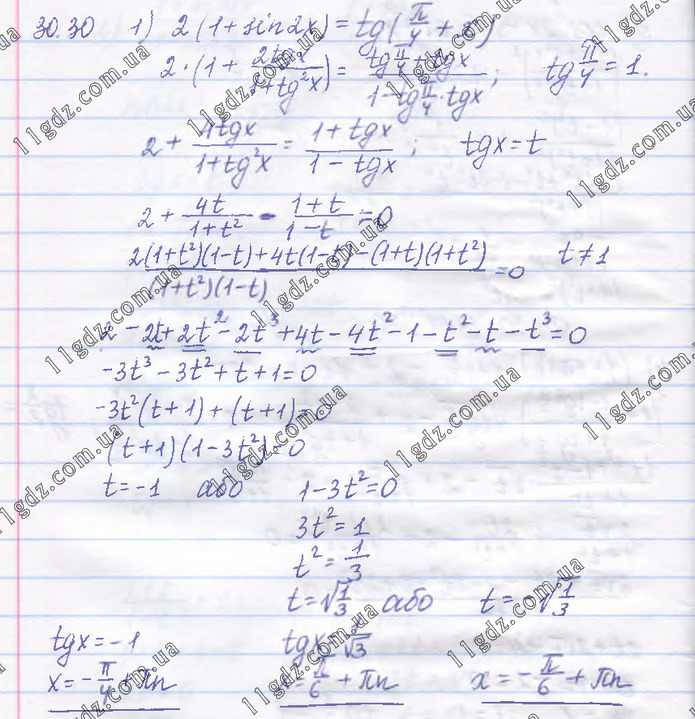 30.30 1) 2(1+sin2x)=tg(π/4+x)
2·(1+2tgx/(1+tg²x))=(tgπ/4+tgx)/(1-tgπ/4·tgx); tgπ/4=1.
2+4tgx/(1+tg²x)=(1+tgx)/(1-tgx); tgx=t
2+4t/(1+t²)-(1+t)/(1-t)=0
(2(1+t²)(1-t)+4t(1-t)-(1+t)(1+t²))/((1+t²)(1-t))=0 t≠1
2-2t+2t²-2t³+4t-4t²-1-t²-t-t³=0
-3t³-3t²+t+1=0
-3t²(t+1)+(t+1)=0
(t+1)(1-3t²)=0
t=-1 або 1-3t²=0
3t²=1
t²=1/3
t=√1/3 або t=-√1/3
tgx=-1 tgx=1/√3
x=-π/4+πn x=π/6+πn x=-π/6+πn
11gdz.com.ua